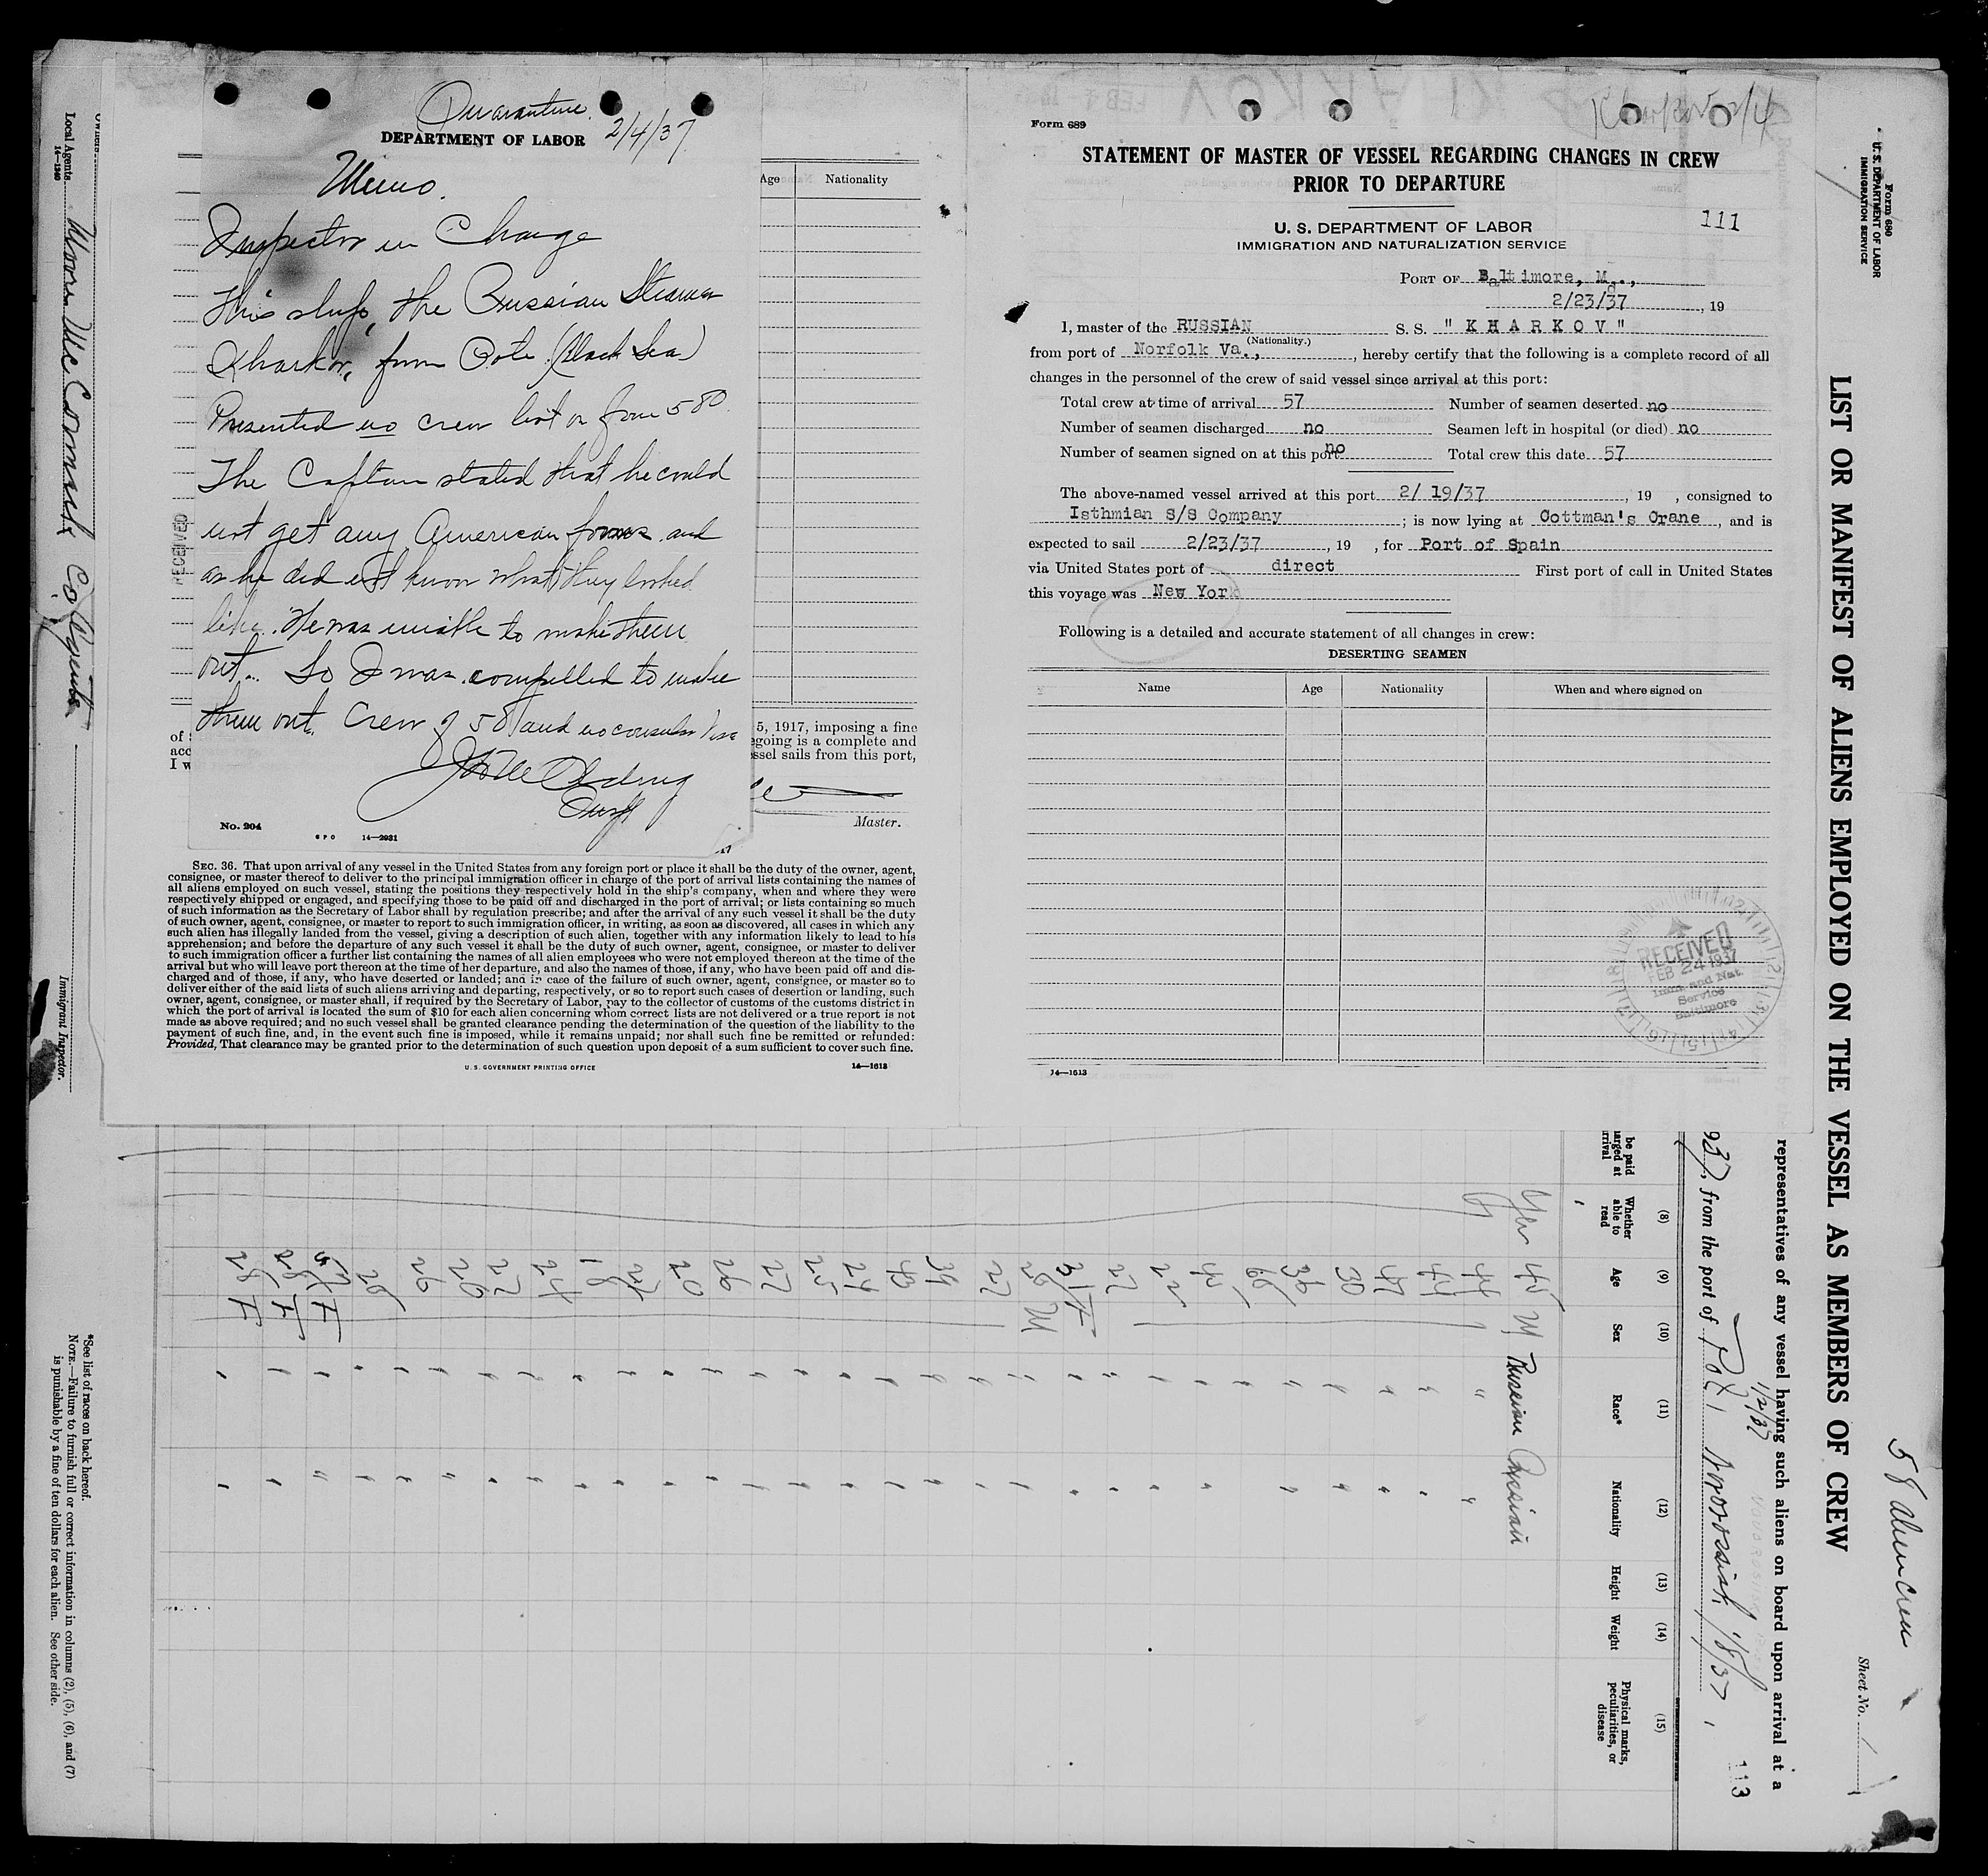 Quarantine
DEPARTMENT OF LABOR 2/4/37
Memo.
Inspector in Charge
This ship, the Russian Steamer
Kharkov, from Poti (Black Sea)
Presented no crew list or form 580
The Captain stated that he could
not get any American forms and
as he did not know what they looked
like. He was unable to make them
out. So I was compelled to make
them out. Crew of 58 and no consular visa
No. 204
GPO 14—2931
RECEIVED
Age Nationality
of
acc
I w
5, 1917, imposing a fine
egoing is a complete and
ssel sails from this port,
Master.
SEC. 36. That upon arrival of any vessel in the United States from any foreign port or place it shall be the duty of the owner, agent,
consignee, or master thereof to deliver to the principal immigration officer in charge of the port of arrival lists containing the names of
all aliens employed on such vessel, stating the positions they respectively hold in the ship's company, when and where they were
respectively shipped or engaged, and specifying those to be paid off and discharged in the port of arrival; or lists containing so much
of such information as the Secretary of Labor shall by regulation prescribe; and after the arrival of any such vessel it shall be the duty
of such owner, agent, consignee, or master to report to such immigration officer, in writing, as soon as discovered, all cases in which any
such alien has illegally landed from the vessel, giving a description of such alien, together with any information likely to lead to his
apprehension; and before the departure of any such vessel it shall be the duty of such owner, agent, consignee, or master to deliver
to such immigration officer a further list containing the names of all alien employees who were not employed thereon at the time of the
arrival but who will leave port thereon at the time of her departure, and also the names of those, if any, who have been paid off and dis-
charged and of those, if any, who have deserted or landed; and in case of the failure of such owner, agent, consignee, or master so to
deliver either of the said lists of such aliens arriving and departing, respectively, or so to report such cases of desertion or landing, such
owner, agent, consignee, or master shall, if required by the Secretary of Labor, pay to the collector of customs of the customs district in
which the port of arrival is located the sum of $10 for each alien concerning whom correct lists are not delivered or a true report is not
made as above required; and no such vessel shall be granted clearance pending the determination of the question of the liability to the
payment of such fine, and, in the event such fine is imposed, while it remains unpaid; nor shall such fine be remitted or refunded:
Provided, That clearance may be granted prior to the determination of such question upon deposit of a sum sufficient to cover such fine.
U. S. GOVERNMENT PRINTING OFFICE 14—1613
Form 689
Kharkov 2/4
STATEMENT OF MASTER OF VESSEL REGARDING CHANGES IN CREW
PRIOR TO DEPARTURE
U. S. DEPARTMENT OF LABOR
IMMIGRATION AND NATURALIZATION SERVICE
111
PORT OF Baltimore, Md.,
2/23/37, 19
I, master of the RUSSIAN S. S. " K H A R K O V "
(Nationality.)
from port of Norfolk Va., , hereby certify that the following is a complete record of all
changes in the personnel of the crew of said vessel since arrival at this port:
Total crew at time of arrival 57 Number of seamen deserted no
Number of seamen discharged no Seamen left in hospital (or died) no
Number of seamen signed on at this port no Total crew this date 57
The above-named vessel arrived at this port 2/ 19/37, 19 , consigned to
Isthmian S/S Company ; is now lying at Cottman's Crane, and is
expected to sail 2/23/37, 19 , for Port of Spain
via United States port of direct First port of call in United States
this voyage was New York
Following is a detailed and accurate statement of all changes in crew:
DESERTING SEAMEN
Name Age Nationality When and where signed on
RECEIVED
FEB 24 1937
Imm. and Nat.
Service
Baltimore
14—1613
Form 680
U. S. DEPARTMENT OF LABOR
IMMIGRATION SERVICE
LIST OR MANIFEST OF ALIENS EMPLOYED ON THE VESSEL AS MEMBERS OF CREW
58 alien crew
Sheet No. 1
representatives of any vessel having such aliens on board upon arrival at a
1/2/37
937, from the port of Poti, Novorossisk 1/8/37,
113
be paid
arged at
rrival
(8) Whether able to read
(9) Age
(10) Sex
(11) Race*
(12) Nationality
(13) Height
(14) Weight
(15) Physical marks, peculiarities, or disease
Yes 45 M Russian Russian
44 " "
44
47
30
36
66
45
22
27
31 F
26 M
27
39
43
24
25
27
26
20
24
18
24
27
26
26
28
F
28 F
28 F
*See list of races on back hereof.
NOTE.—Failure to furnish full or correct information in columns (2), (5), (6), and (7)
is punishable by a fine of ten dollars for each alien. See other side.
Immigrant Inspector.
Owners
Local Agents Moore McCormack Co Agents
14—1240